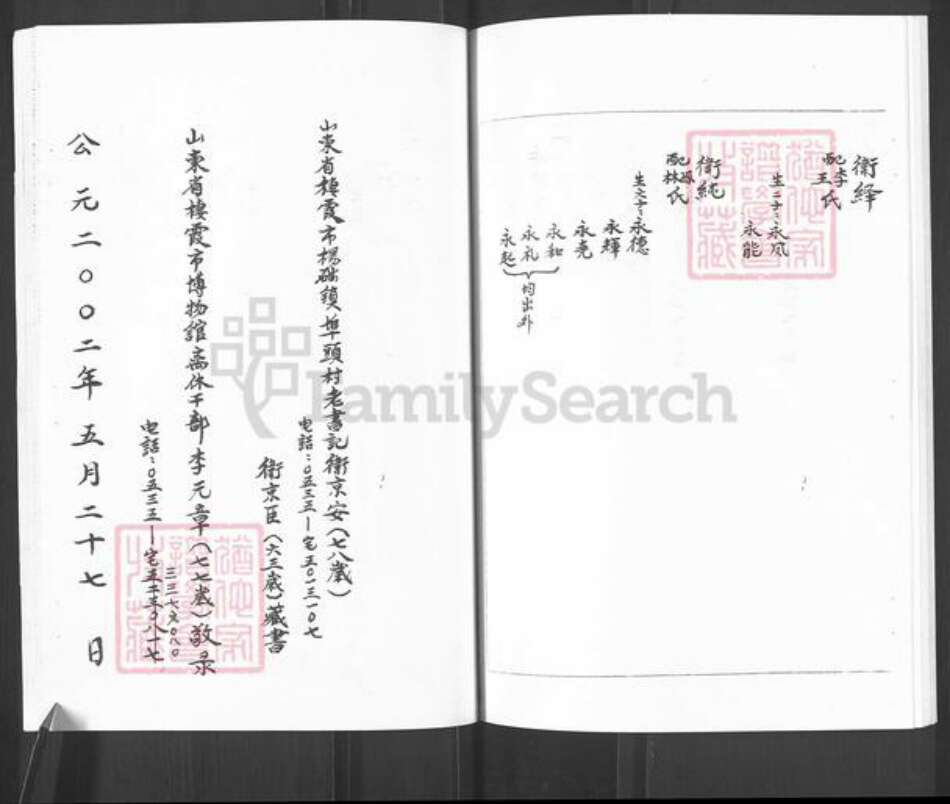 衛绎
配李王氏
生二子：永凤
永能
衛純
配林氏
生六子：永德
永輝
永尭
永和
永礼
永起
均出外
山東省棲霞市楊础鎮埠頭村老書記衛京安（七八歲）
电話：〇五三五—宅五〇一三一〇七
衛京臣（六三歲）藏書
山東省棲霞市博物館离休干部李元章（七七歲）敬录
电話：〇五三五—宅
公元二〇〇二年五月二十七日
FamilySearch